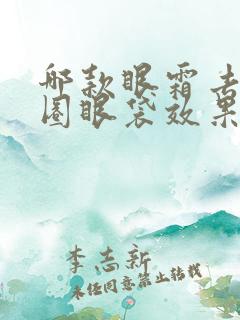 哪款眼霜去
圈眼袋效果
李志新
未经同意禁止转载